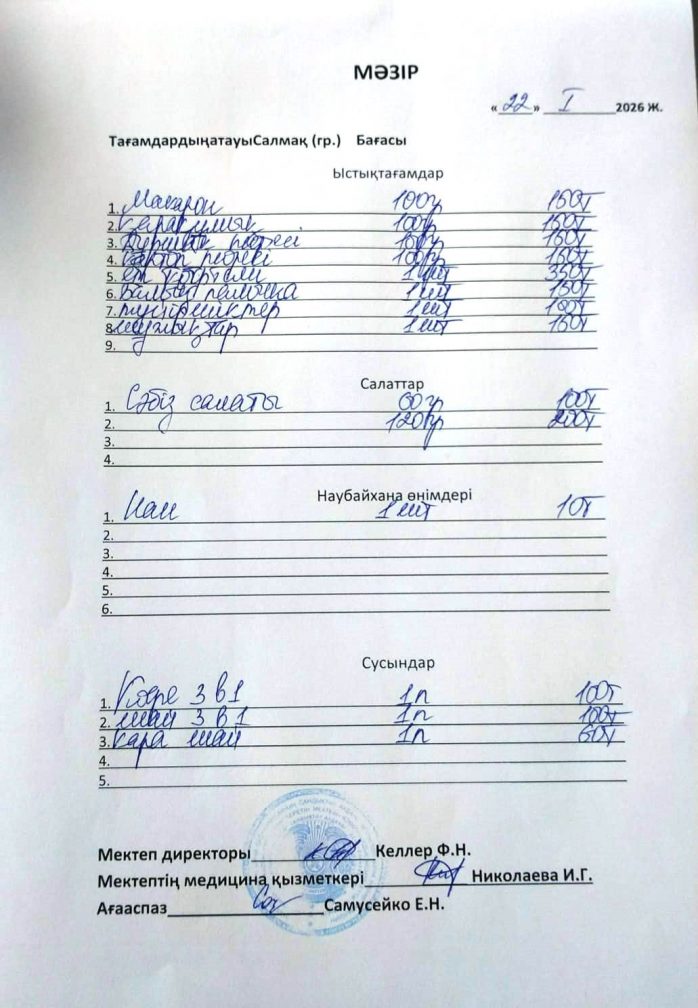 МӘЗІР
«22» I 2026 ж.
ТағамдардыңатауыСалмақ (гр.) Бағасы
Ыстықтағамдар
1. Макарон 100гр 150т
2. Қарақұмық 100гр 150т
3. пюресі 150т
4. пюресі 150т
5. ет 1 шт 350т
6. палочка 1 шт 150т
7. түйірмектер 1 шт
8. шұжықтар 1 шт 150т
9.
Салаттар
1. Сәбіз салаты 60гр 100т
2. 120гр 200т
3.
4.
Наубайхана өнімдері
1. Нан 1 шт 10т
2.
3.
4.
5.
6.
Сусындар
1. Кофе 3 в 1 1п 100т
2. шай 3 в 1 1п 100т
3. қара шай 1п 60т
4.
5.
Мектеп директоры Келлер Ф.Н.
Мектептің медицина қызметкері Николаева И.Г.
Ағааспаз Самусейко Е.Н.